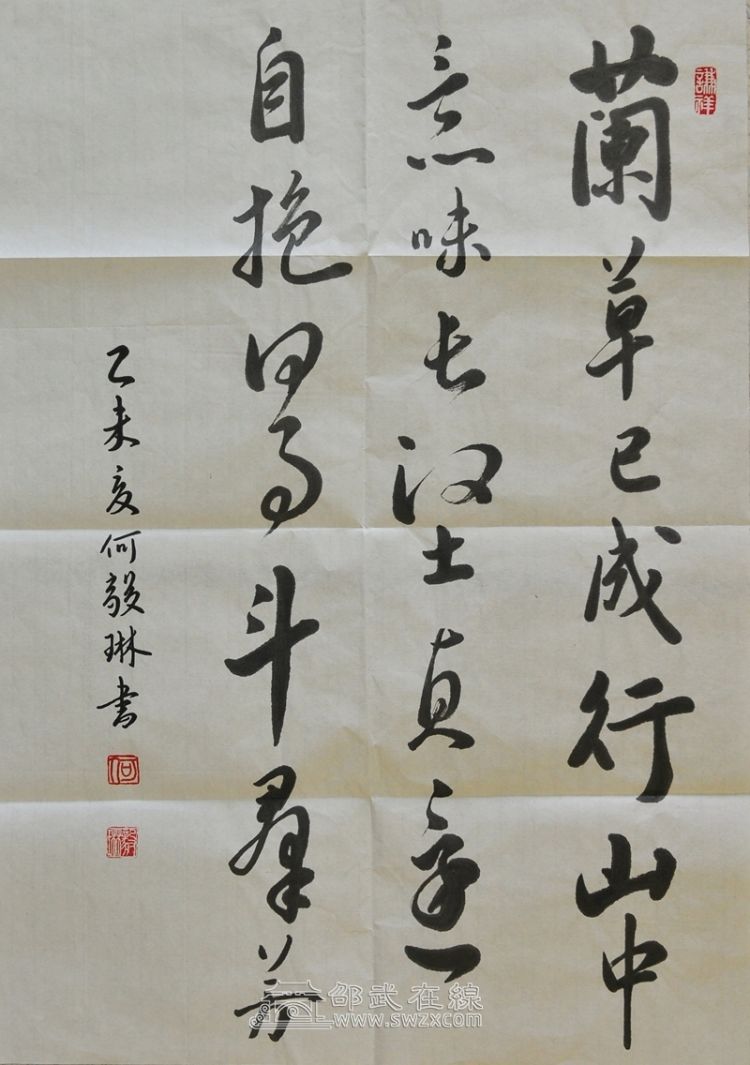 謙祥
蘭草已成行山中
意味長堅貞還
自抱何事斗羣芳
乙未夏何毅琳書
何
毅琳
邵武在線
www.swzxcom